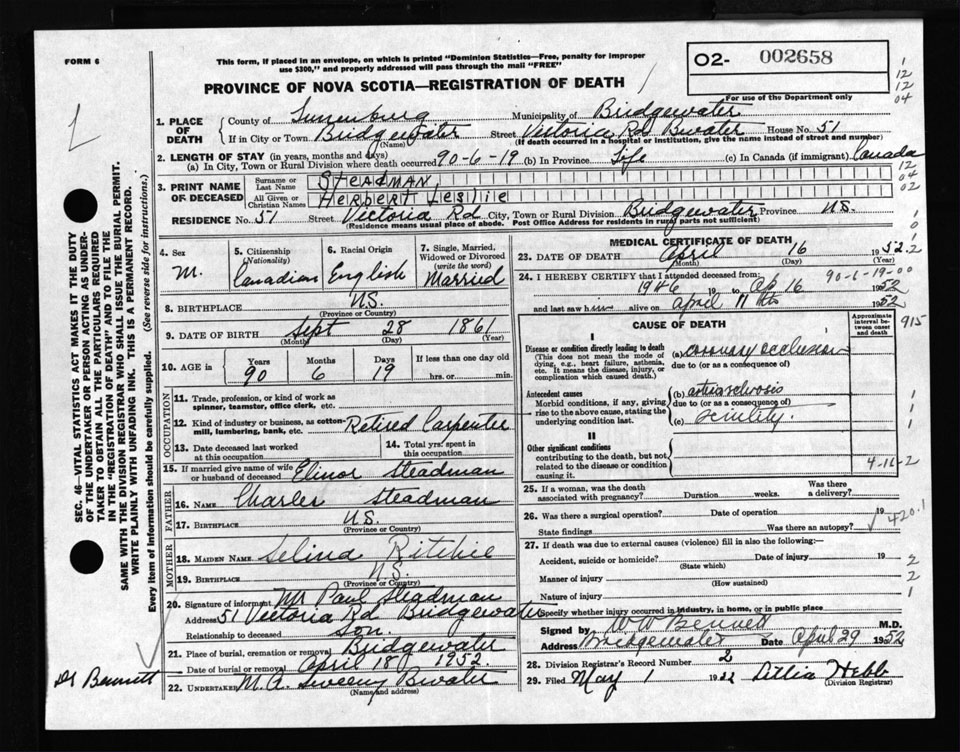 FORM 6
This form, if placed in an envelope, on which is printed "Dominion Statistics—Free, penalty for improper
use $300," and properly addressed will pass through the mail "FREE"
O2- 002658
For use of the Department only
PROVINCE OF NOVA SCOTIA—REGISTRATION OF DEATH
1. PLACE OF DEATH
County of Lunenburg Municipality of Bridgewater
If in City or Town Bridgewater Street Victoria Rd Bwater House No. 51
(Name) (If death occurred in a hospital or institution, give the name instead of street and number)
2. LENGTH OF STAY (in years, months and days)
(a) In City, Town or Rural Division where death occurred 90-6-19 (b) In Province Life (c) In Canada (if immigrant) Canada
3. PRINT NAME OF DECEASED
Surname or Last Name STEADMAN
All Given or Christian Names HERBERT LESLIE
RESIDENCE No. 51 Street Victoria Rd City, Town or Rural Division Bridgewater Province N.S.
(Residence means usual place of abode. Post Office Address for residents in rural parts not sufficient)
4. Sex
M.
5. Citizenship
(Nationality)
Canadian
6. Racial Origin
English
7. Single, Married,
Widowed or Divorced
(write the word)
Married
8. BIRTHPLACE N.S.
(Province or Country)
9. DATE OF BIRTH Sept 28 1861
(Month) (Day)
10. AGE in
Years Months Days If less than one day old
90 6 19 hrs. or min.
OCCUPATION
11. Trade, profession, or kind of work as
spinner, teamster, office clerk, etc.
12. Kind of industry or business, as cotton-
mill, lumbering, bank, etc. Retired Carpenter
13. Date deceased last worked
at this occupation
14. Total yrs. spent in
this occupation
15. If married give name of wife
or husband of deceased Elinor Steadman
FATHER
16. Name Charles Steadman
17. BIRTHPLACE N.S.
(Province or Country)
MOTHER
18. MAIDEN NAME Selina Ritchie
19. BIRTHPLACE N.S.
(Province or Country)
20. Signature of informant Mr Paul Steadman
Address 51 Victoria Rd Bridgewater
Relationship to deceased Son.
21. Place of burial, cremation or removal Bridgewater
Date of burial or removal April 18 1952.
22. UNDERTAKER M.A. Sweeny Bwater
(Name and address)
Dr Bennett
MEDICAL CERTIFICATE OF DEATH
23. DATE OF DEATH April 16 1952
(Month) (Day) (Year)
24. I HEREBY CERTIFY that I attended deceased from: 90-6-19-00
1946 to Ap 16 1952
and last saw him alive on April 11th 1952
CAUSE OF DEATH
Approximate
interval be-
tween onset
and death
915
I
Disease or condition directly leading to death
(This does not mean the mode of
dying, e.g., heart failure, asthenia,
etc. It means the disease, injury, or
complication which caused death.)
(a) coronary occlusion
due to (or as a consequence of)
Antecedent causes
Morbid conditions, if any, giving
rise to the above cause, stating the
underlying condition last.
(b) arteriosclerosis
due to (or as a consequence of)
(c) senility
II
Other significant conditions
contributing to the death, but not
related to the disease or condition
causing it.
4-16-2
25. If a woman, was the death
associated with pregnancy? Duration weeks—Was there
a delivery?
26. Was there a surgical operation? Date of operation 19
420.1
State findings Was there an autopsy?
27. If death was due to external causes (violence) fill in also the following:—
Accident, suicide or homicide? Date of injury 19
(State which)
Manner of injury
(How sustained)
Nature of injury
Specify whether injury occurred in industry, in home, or in public place
Signed by W W Bennett M.D.
Address Bridgewater Date April 29 1952
28. Division Registrar's Record Number 2
29. Filed May 1 1952 Hebb
(Division Registrar)
SEC. 46—VITAL STATISTICS ACT MAKES IT THE DUTY
OF THE UNDERTAKER OR PERSON ACTING AS UNDER-
TAKER TO OBTAIN ALL THE PARTICULARS REQUIRED
IN THE "REGISTRATION OF DEATH" AND TO FILE THE
SAME WITH THE DIVISION REGISTRAR WHO SHALL ISSUE THE BURIAL PERMIT.
WRITE PLAINLY WITH UNFADING INK. THIS IS A PERMANENT RECORD.
Every item of information should be carefully supplied. (See reverse side for instructions.)